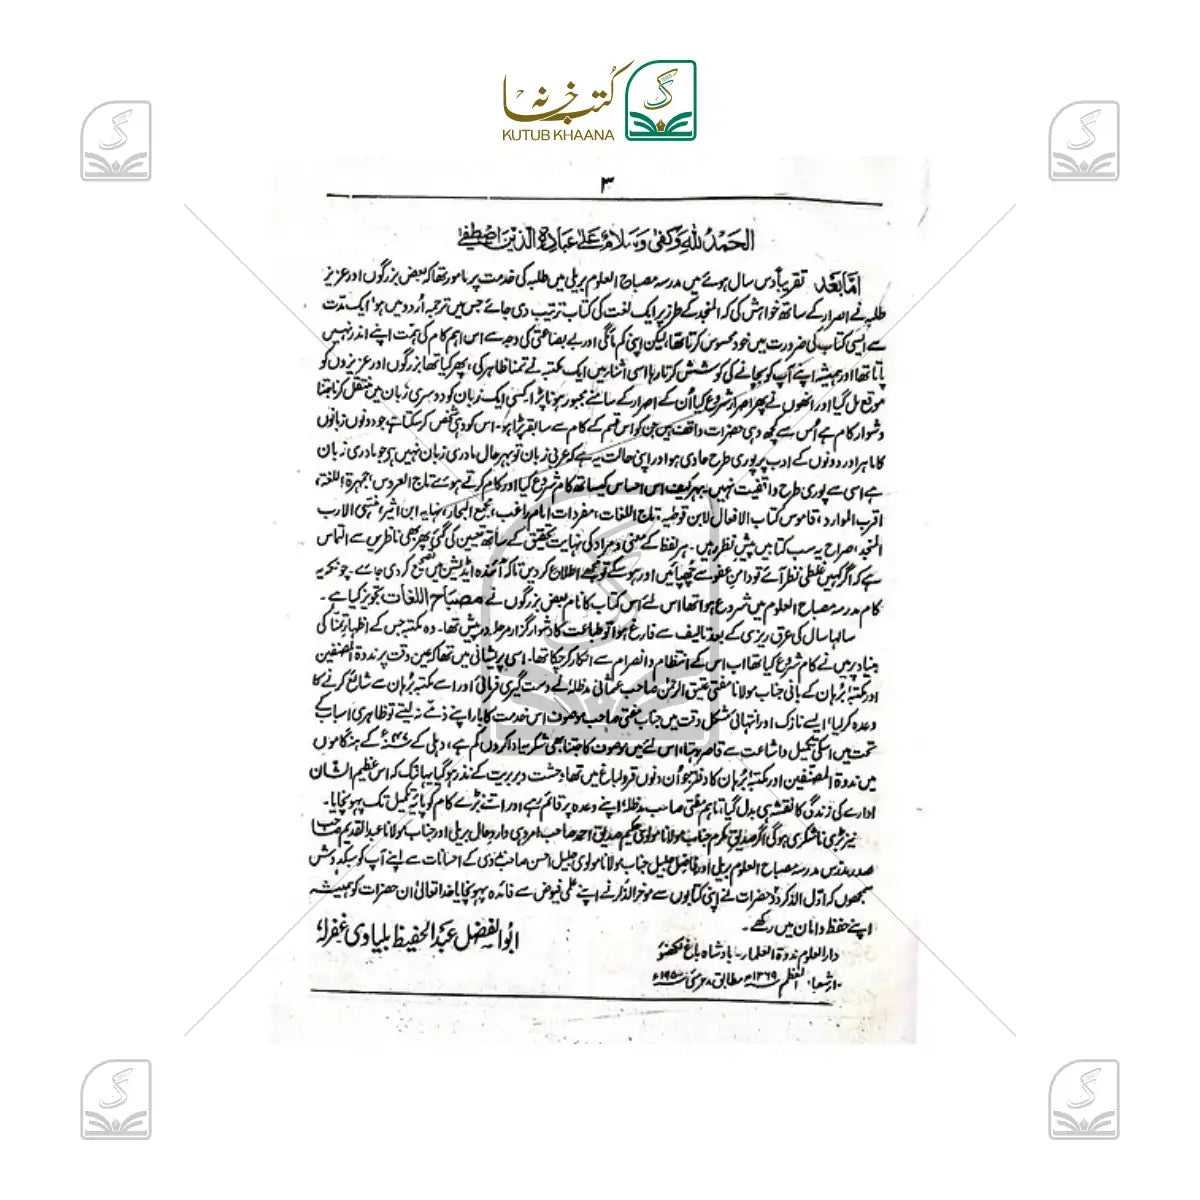 کتب خانہ
KUTUB KHAANA
۳
الحمد للہ وکفی وسلام علی عبادہ الذین اصطفی
اما بعد تقریباً دس سال ہوئے میں مدرسہ مصباح العلوم بریلی میں طلبہ کی خدمت پر مامور تھا کہ بعض بزرگوں اور عزیز
طلبہ نے اصرار کے ساتھ خواہش کی کہ المنجد کے طرز پر ایک لغت کی کتاب ترتیب دی جائے جس میں ترجمہ اُردو میں ہو، ایک مدت
سے ایسی کتاب کی ضرورت میں خود محسوس کرتا تھا، لیکن اپنی کم مائگی اور بے بضاعتی کی وجہ سے اس اہم کام کی ہمت اپنے اندر نہیں
پاتا تھا اور ہمیشہ اپنے آپ کو بچانے کی کوشش کرتا رہا اسی اثنار میں ایک مکتبہ نے تمنا ظاہر کی، پھر کیا تھا بزرگوں اور عزیزوں کو
موقع مل گیا اور انھوں نے پھر اصرار شروع کیا اُن کے اصرار کے سامنے مجبور ہونا پڑا، کسی ایک زبان کو دوسری زبان میں منتقل کرنا جتنا
دشوار کام ہے اُس سے کچھ وہی حضرات واقف ہیں جن کو اس قسم کے کام سے سابقہ پڑا ہو۔ اس کو وہی شخص کر سکتا ہے جو دونوں زبانوں
کا ماہر اور دونوں کے ادب پر پوری طرح حاوی ہو اور اپنی حالت یہ ہے کہ عربی زبان تو بہرحال مادری زبان نہیں ہی جو مادری زبان
ہے اسی سے پوری طرح واقفیت نہیں۔ بہرکیف اس احساس کیساتھ کام شروع کیا اور کام کرتے ہوئے تاج العروس، جمہرۃ اللغۃ،
اقرب الموارد، قاموس کتاب الافعال لابن قوطیہ، تاج اللغات، مفردات امام راغب، مجمع البحار، نہایہ ابن اثیر، منتہی الارب
المنجد، صراح یہ سب کتابیں پیش نظر رہیں۔ ہر لفظ کے معنی و مراد کی نہایت تحقیق کے ساتھ تعیین کی گئی پھر بھی ناظرین سے التماس
ہے کہ اگر کہیں غلطی نظر آئے تو دامن عفو سے چُھپائیں اور ہو سکے تو مجھے اطلاع کر دیں تاکہ آئندہ ایڈیشن میں تصحیح کر دی جائے۔ چونکہ یہ
کام مدرسہ مصباح العلوم میں شروع ہوا تھا اس لئے اس کتاب کا نام بعض بزرگوں نے مصباح اللغات تجویز کیا ہے۔
سالہا سال کی عرق ریزی کے بعد تالیف سے فارغ ہوا تو طباعت کا دشوار گزار مرحلہ درپیش تھا۔ وہ مکتبہ جس کے اظہار تمنا کی
بنیاد پر میں نے کام شروع کیا تھا اب اس کے انتظام و انصرام سے انکار کر چکا تھا۔ اسی پریشانی میں تھا کہ عین وقت پر ندوۃ المصنفین
اور مکتبۂ بُرہان کے بانی جناب مولانا مفتی عتیق الرحمٰن صاحب عثمانی مدظلہٗ نے دست گیری فرمائی اور اسے مکتبہ بُرہان سے شائع کرنے کا
وعدہ کر لیا، ایسے نازک اور انتہائی مشکل وقت میں جناب مفتی صاحب موصوف اس خدمت کا بار اپنے ذمّے نہ لیتے تو ظاہری اسباب کے
تحت میں اسکی تکمیل و اشاعت سے قاصر رہتا، اس لئے میں موصوف کا جتنا بھی شکریہ ادا کروں کم ہے، دہلی کے ۴۷ء کے ہنگاموں
میں ندوۃ المصنفین اور مکتبۂ بُرہان کا دفتر جو اُن دنوں قرولباغ میں تھا، وحشت و بربریت کے نذر ہو گیا یہانتک کہ اس عظیم الشان
ادارے کی زندگی کا نقشہ ہی بدل گیا تاہم مفتی صاحب مدظلہٗ اپنے وعدہ پر قائم رہے اور اتنے بڑے کام کو پایۂ تکمیل تک پہونچایا۔
نیز بڑی ناشکری ہوگی اگر صدیق مکرم جناب مولانا مولوی حکیم صدیق احمد صاحب امروہی وارد حال بریلی اور جناب مولانا عبدالقدیم صاحب
صدر مدرس مدرسہ مصباح العلوم بریلی اور فاضل جلیل جناب مولانا مولوی جلیل احسن صاحب ندوی کے احسانات سے اپنے آپ کو سبکدوش
سمجھوں کہ اوّل الذکر دو حضرات نے اپنی کتابوں سے موخر الذکر نے اپنے علمی فیوض سے فائدہ پہونچایا خدا تعالیٰ ان حضرات کو ہمیشہ
اپنے حفظ و امان میں رکھے۔
ابو الفضل عبد الحفیظ بلیاوی غفرلہٗ
دارالعلوم ندوۃ العلمار۔ بادشاہ باغ لکھنؤ
شعبان المعظم ۱۳۶۹ھ مطابق مئی ۱۹۵۰ء